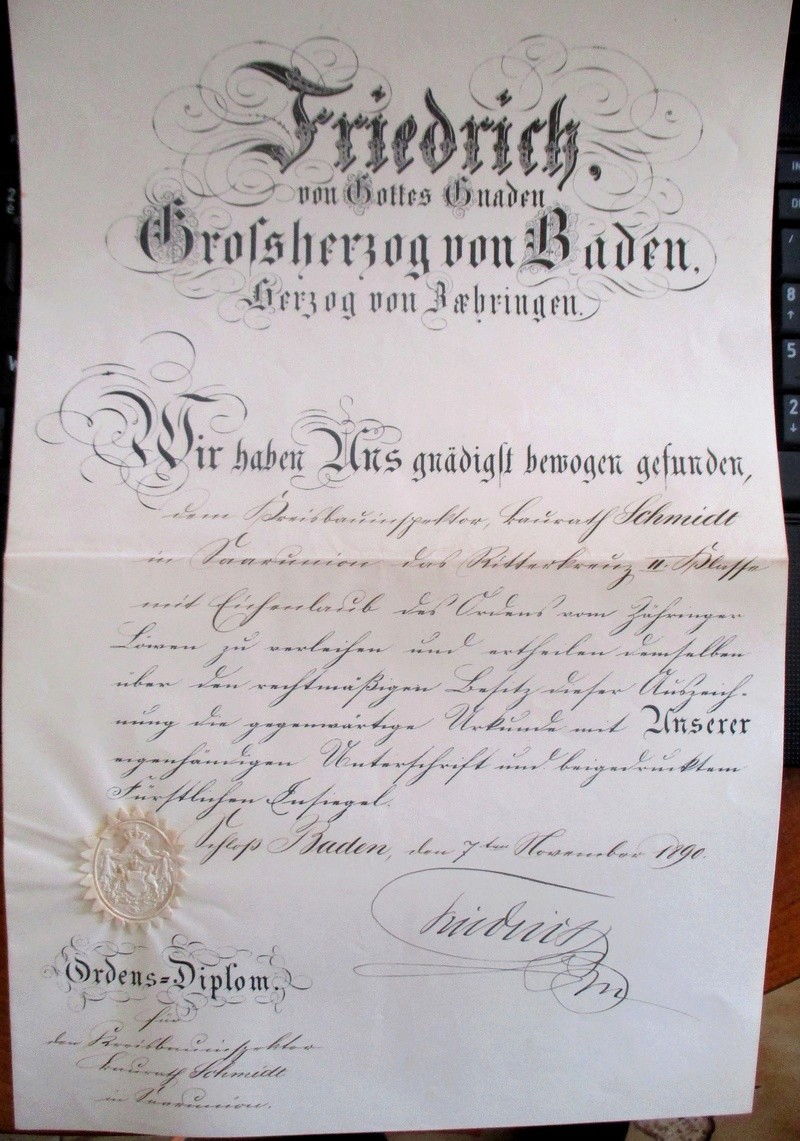 Friedrich,
von Gottes Gnaden
Grossherzog von Baden,
Herzog von Zæhringen.
Wir haben Uns gnädigst bewogen gefunden,
dem Kreisbauinspektor, Baurath Schmidt
in Saarunion das Ritterkreuz II. Klasse
mit Eichenlaub des Ordens vom Zähringer
Löwen zu verleihen und ertheilen demselben
über den rechtmäßigen Besitz dieser Auszeich-
nung die gegenwärtige Urkunde mit Unserer
eigenhändigen Unterschrift und beigedrucktem
Fürstlichen Insiegel.
Schloß Baden, den 7ten November 1890.
Friedrich
Ordens-Diplom.
für
den Kreisbauinspektor
Baurath Schmidt
in Saarunion.
8
5
2